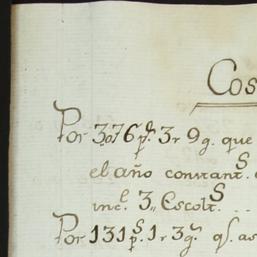 Cos
Por 3,076 p.s 3 r 9 g. que
el año constant.s
incl. 3,, Escolt.s ..
Por 131 p.s 1 r 3 g.s q.s as